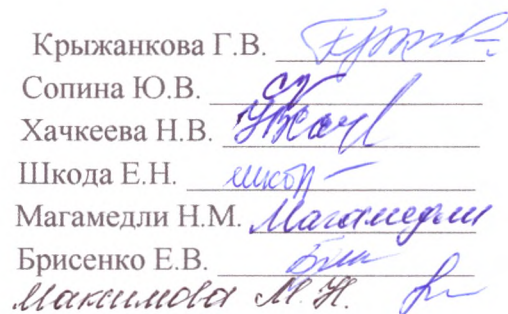 Крыжанкова Г.В.
Сопина Ю.В.
Хачкеева Н.В.
Шкода Е.Н.
Магамедли Н.М. Магамедли
Брисенко Е.В.
Максимова М.Н.